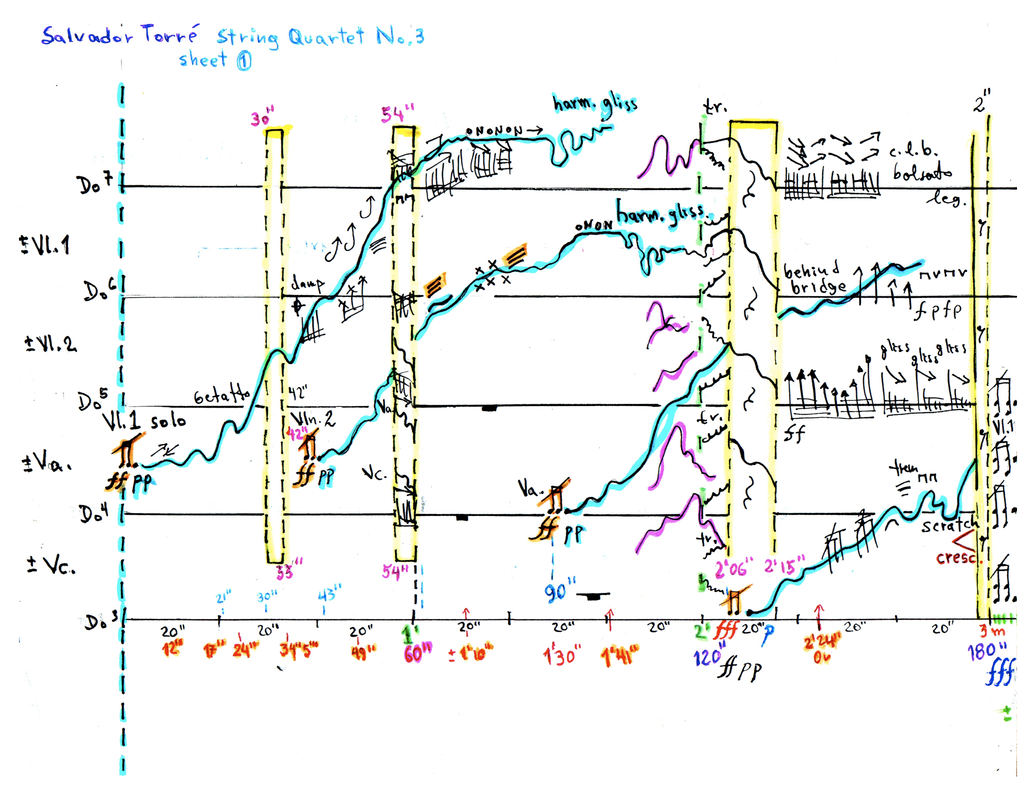 Salvador Torré String Quartet No.3
sheet 1
30" 54" harm. gliss tr. 2"
oNoNoN →
c.l.b.
Do7 balsato
leg.
harm. gliss.
± Vl.1 oNoN
damp behind
Do6 bridge
fpfp
± Vl.2
gliss gliss gliss
Getatto 42"
Do5 Va.
Vl.1 solo Vln.2 ff tr. Vl.1
42"
± Va. Vc. trem
ff pp ff pp Va.
Do4 ff pp scratch
tr. cresc.
± Vc. 33" 54" 2'06" 2'15"
90"
21" 30" 43"
Do3
20" 20" 20" 1' 20" 20" 20" 2' fff 20" p 20" 20" 3m
12" 17" 24" 34" 5" 49" 60" ± 1'10" 1'30" 1'41" 120" 2'24" 180"
ff pp fff
±